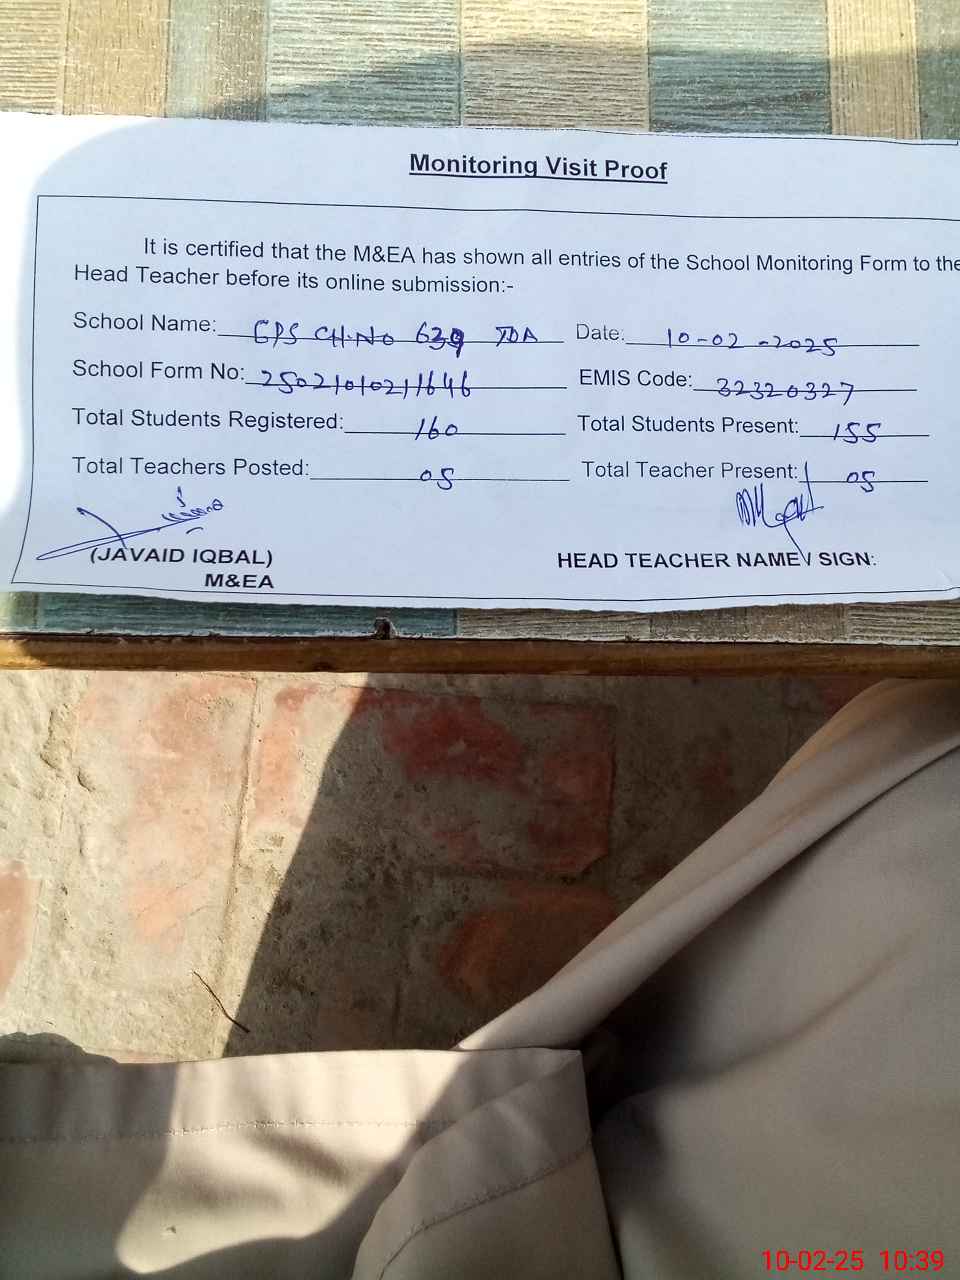 Monitoring Visit Proof
It is certified that the M&EA has shown all entries of the School Monitoring Form to the
Head Teacher before its online submission:-
School Name: GPS CH.No 639 TDA Date: 10-02-2025
School Form No: 25021010211646 EMIS Code: 32320327
Total Students Registered: 160 Total Students Present: 155
Total Teachers Posted: 05 Total Teacher Present: 05
(JAVAID IQBAL) HEAD TEACHER NAME / SIGN:
M&EA
10-02-25 10:39